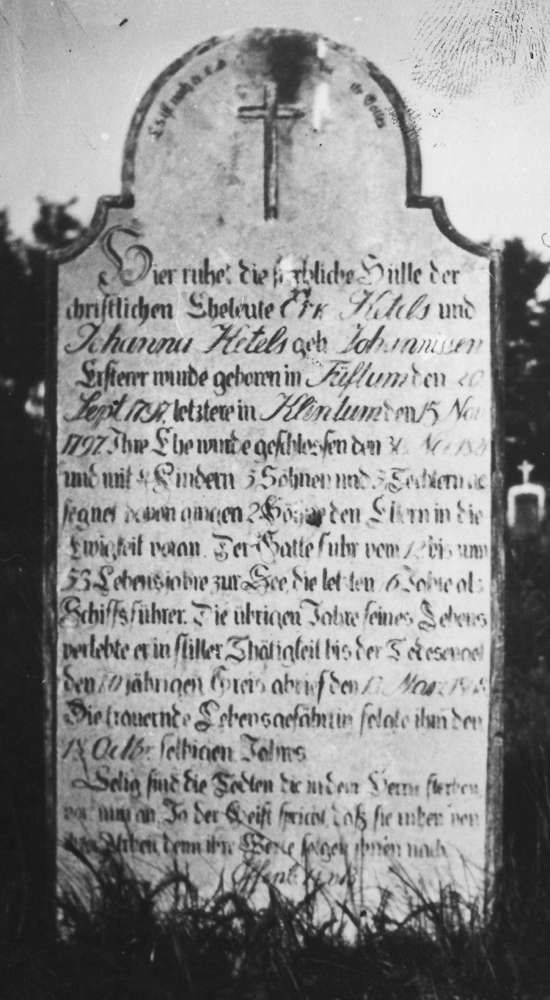 Es ist noch
Hier ruhet die sterbliche Hülle der
christlichen Eheleute Erk Ketels und
Johanna Ketels geb. Johannissen
Ersterer wurde geboren in Füsbüll den 20
Sept 1757, letztere in Klintum den 15 Nov
1797 Ihre Ehe wurde geschlossen den
und mit Kindern 5 Söhnen und 3 Töchtern ge
segnet davon gingen 2 Söhne den Eltern in die
Ewigkeit voran. Der Gatte fuhr vom 12 bis zum
53 Lebensjahre zur See, die letzten 16 Jahre als
Schiffsführer. Die übrigen Jahre seines Lebens
verlebte er in stiller Thätigkeit bis der Todesengel
den jährigen Greis abrief den 13 März
Die trauernde Lebensgefährtin folgte ihm den
18 Octbr. selbigen Jahres
Selig sind die Todten die in dem Herrn sterben
von nun an. Ja der Geist spricht, daß sie ruhen von
ihrer Arbeit denn ihre Werke folgen ihnen nach
Offenb.